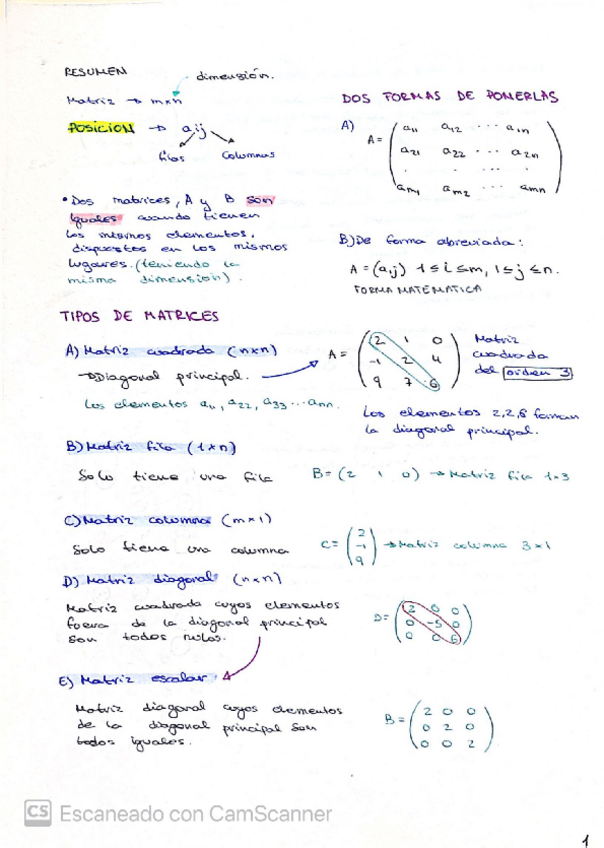 RESUMEN
dimensión.
Matriz → m×n
POSICION → aij
filas columnas
• Dos matrices, A y B son
iguales cuando tienen
los mismos elementos,
dispuestos en los mismos
lugares. (teniendo la
misma dimensión).
DOS FORMAS DE PONERLAS
A)
A = ( a11 a12 ... a1n
a21 a22 ... a2n
. . ... .
am1 am2 ... amn )
B) De forma abreviada:
A = (aij) 1 ≤ i ≤ m, 1 ≤ j ≤ n.
FORMA MATEMATICA
TIPOS DE MATRICES
A) Matriz cuadrada (n×n)
→ Diagonal principal.
Los elementos a11, a22, a33 ... ann.
A = ( 2 1 0
-1 2 4
9 7 6 )
Matriz
cuadrada
del orden 3
Los elementos 2,2,6 forman
la diagonal principal.
B) Matriz fila (1×n)
Solo tiene una fila
B = (2 1 0) → Matriz fila 1×3
C) Matriz columna (m×1)
Solo tiene una columna
C = ( 2
-1
9 ) → Matriz columna 3×1
D) Matriz diagonal (n×n)
Matriz cuadrada cuyos elementos
fuera de la diagonal principal
son todos nulos.
D = ( 2 0 0
0 -5 0
0 0 6 )
E) Matriz escalar.
Matriz diagonal cuyos elementos
de la diagonal principal son
todos iguales.
B = ( 2 0 0
0 2 0
0 0 2 )
CS Escaneado con CamScanner
1